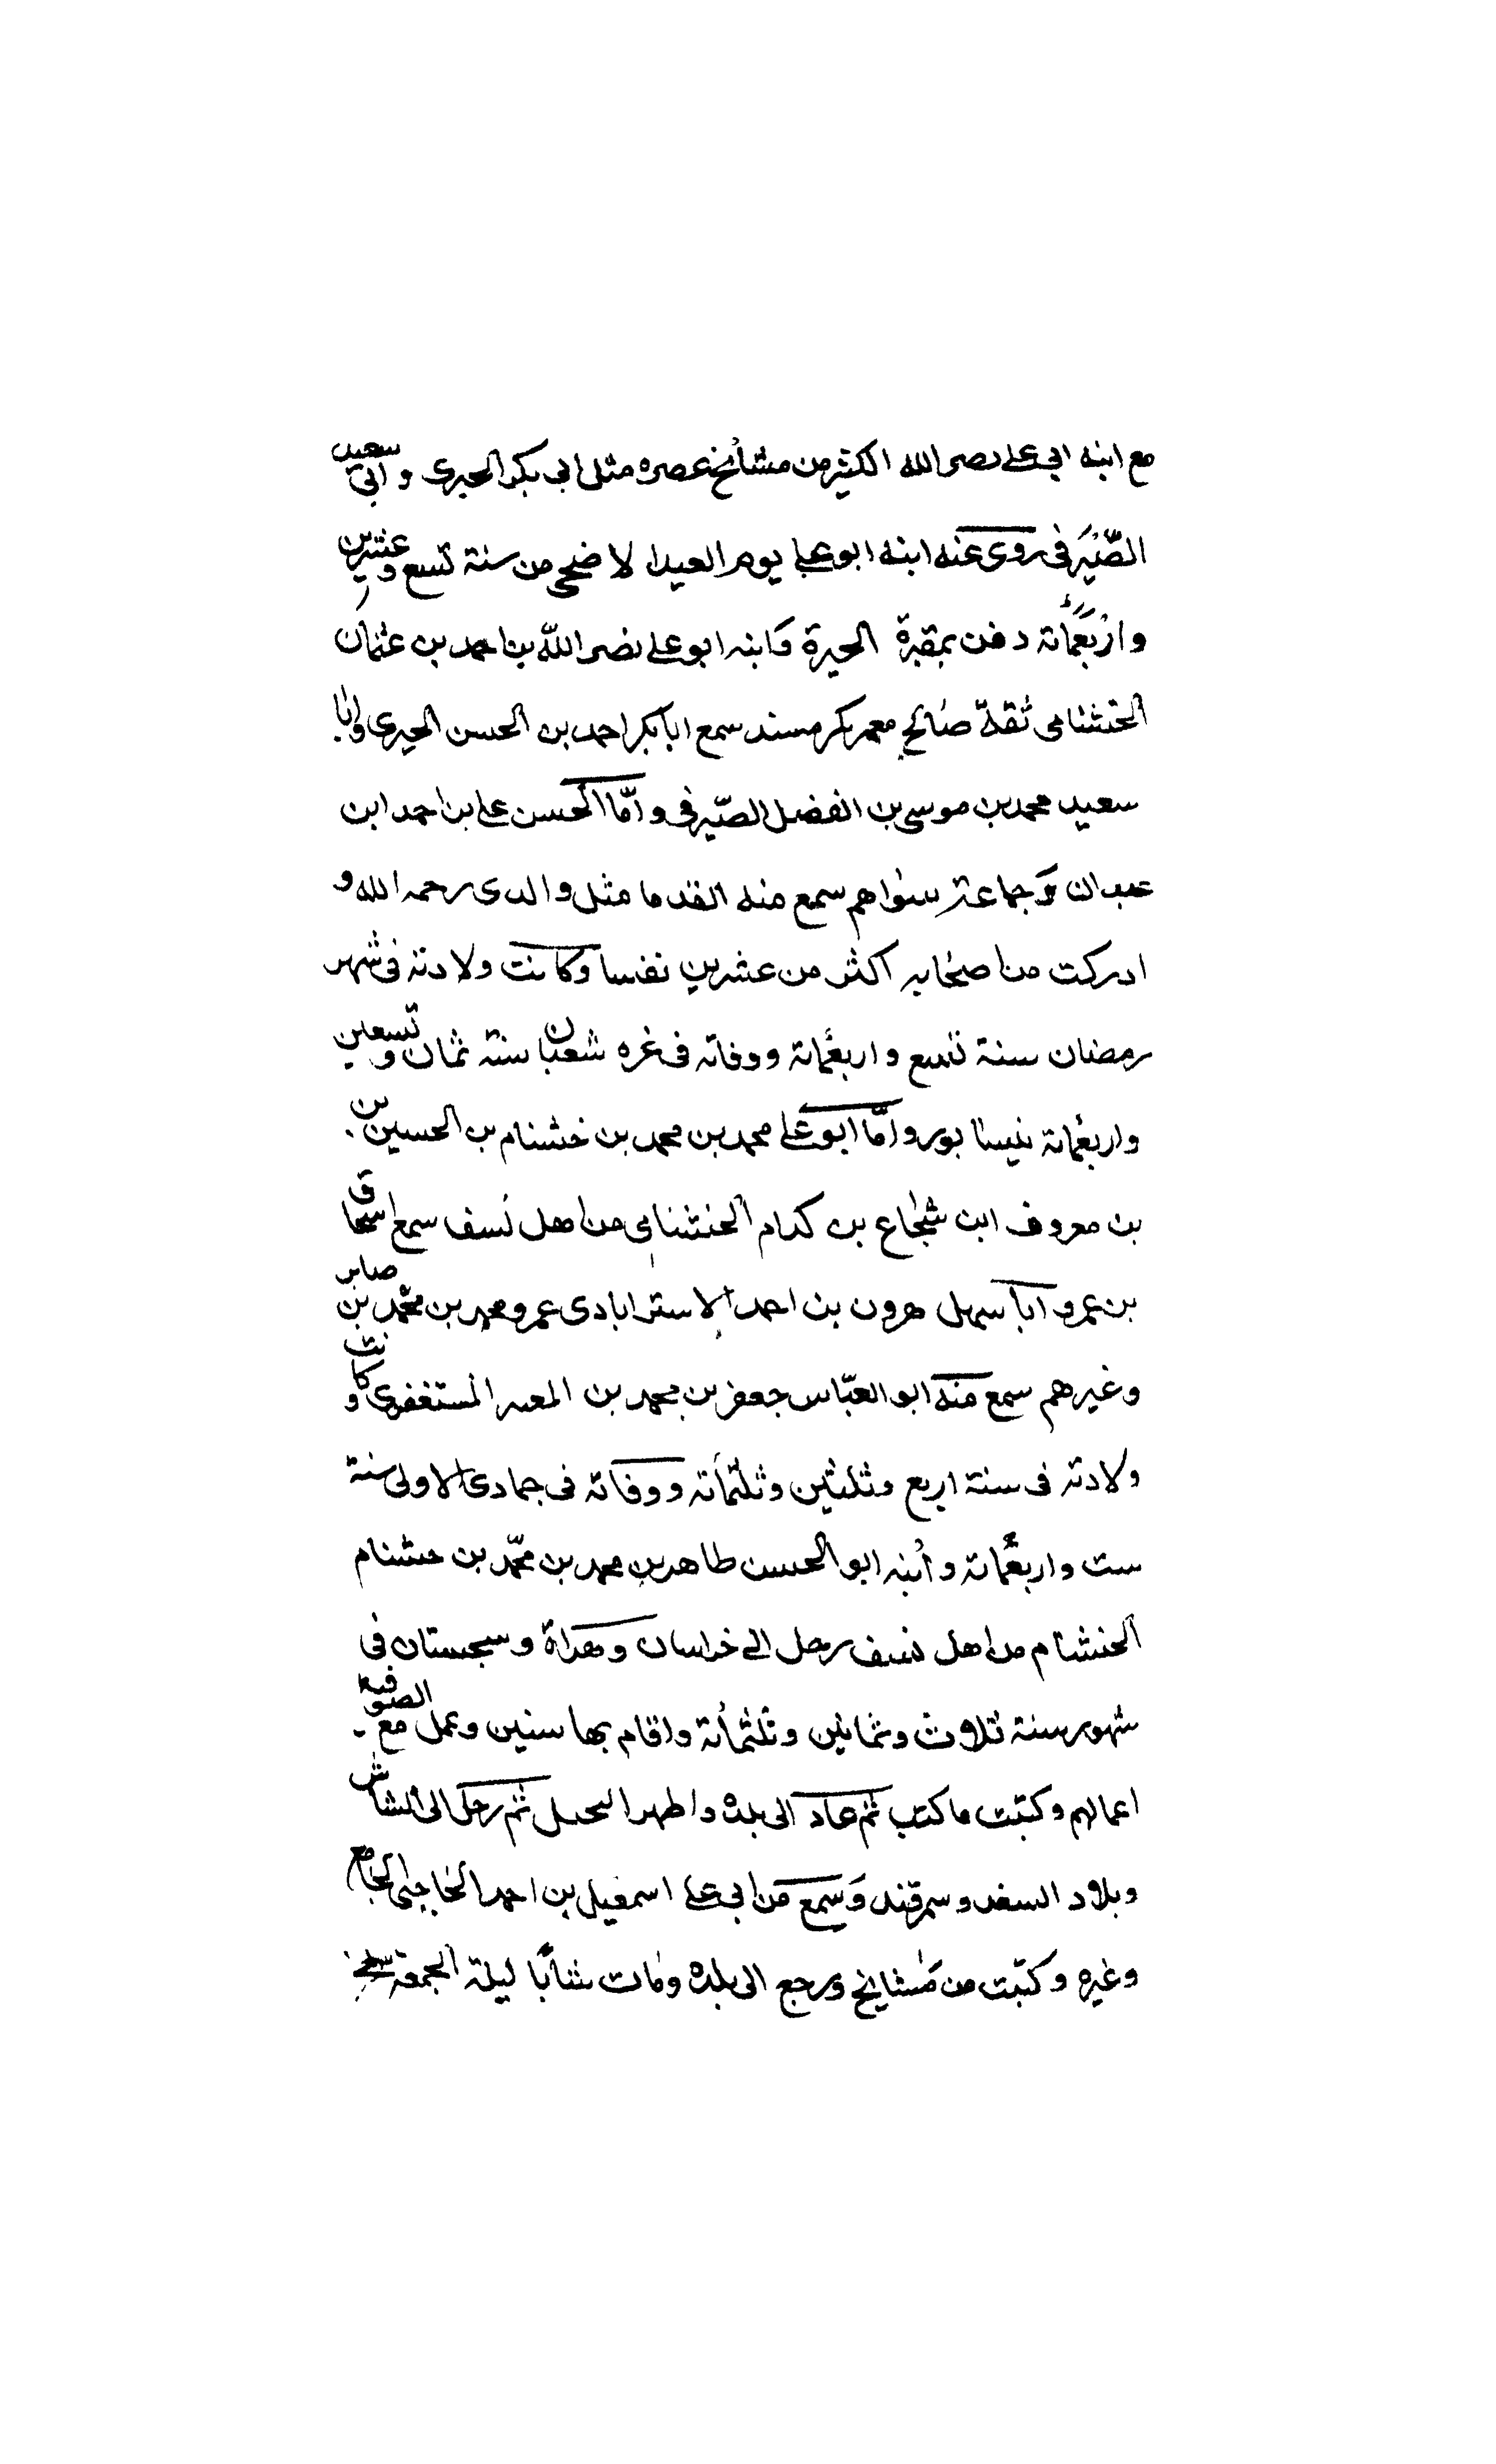 مع ابنه ابي على نصر الله الكثير من مشايخ عصره مثل ابى بكر الحيرى و ابى سعيد
الصَّيْرَفى روى عنه ابنه ابو على يوم العيد الاضحى من سنة تسع وعشرين
واربعمائة دفن بمقبرة الحيرة وَابنه ابو على نصر اللّه بن احمد بن عثمان
الخشنامى ثقة صالح معمر مكثر مسند سمع ابا بكر احمد بن الحسن الحيرى وابا
سعيد محمد بن موسى بن الفضل الصّيرفى و امّا الحسن على بن احمد ابن
عبدان وَجماعة سواهم سمع منه القدما مثل والدى رحمه الله و
ادركت من اصحابه اكثر من عشرين نفسا وكانت ولادته فى شهر
رمضان سنة تسع و اربعمائة ووفاته فى غره شعبان سنة ثمان وتسعين
واربعمائة نيسابور وامّا ابو على محمد بن محمد بن خشنام بن الحسين بن
بن معروف ابن شجاع بن كدام الخشنامى من اهل نسف سمع اسحاق
بن عمرو ابا سهل هرون بن احمد الاسترابادى عمرو محمد بن محمّد بن صابر
وغيرهم سمع منه ابو العبّاس جعفر بن محمد بن المعبر المستغفرى وكانت
ولادته فى سنة اربع وثلثين وثلثمائة ووفاته فى جمادى الاولى سنة
ست واربعمائة وابنه ابو الحسن طاهر بن محمد بن محمّد بن خشنام
الخشنام من اهل نسف رحل الى خراسان وهراة وسجستان فى
شهور سنة ثلاث وثمانين وثلثمائة واقام بها سنين وعمل مع الصوفيه
اعمالهم وكتبت ما كتب ثم عاد الى بلده واظهر التحمل ثم رحل الى الشاش
وبلاد السغد وسمرقند وَسمع من ابى على اسمعيل بن احمد الحاجبى الجامع
وغيره وكتبت من مشايخ ورجع الى بلده ومات شابًّا ليلة الجمعة سلخ